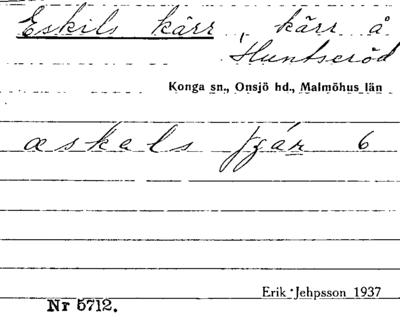 Eskils kärr, kärr å
Huntseröd
Konga sn., Onsjö hd., Malmöhus län
æskels 6
Erik Jehpsson 1937
Nr 5712.